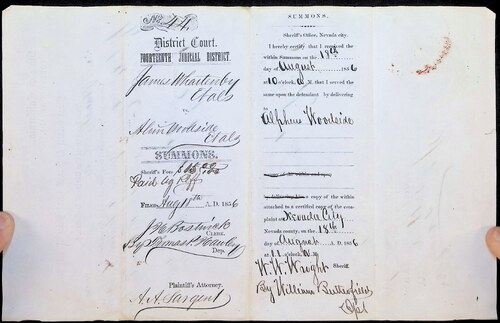 No. 44.
District Court.
FOURTEENTH JUDICIAL DISTRICT.
James Whartenby
et als
vs.
Alvin Woodside
et als
SUMMONS.
Sheriff's Fees
Paid by Plff
FILED Aug 11th A. D. 1856
J H Bostwick
CLERK.
By Thomas P. Hawley
Dep.
Plaintiff's Attorney.
A. A. Sargent
SUMMONS.
Sheriff's Office, Nevada city.
I hereby certify that I received the
within Summons on the 18th
day of August 1856
at 10 o'clock, A. M. that I served the
same upon the defendant by delivering
to
Alpheus Woodside
copy of the within and upon
by delivering to a copy of the within
attached to a certified copy of the com-
plaint at Nevada City
Nevada county, on the 18th
day of August A. D. 1856
at 11 o'clock, A. M.
W. W. Wright Sheriff
By William Butterfield
Dpt